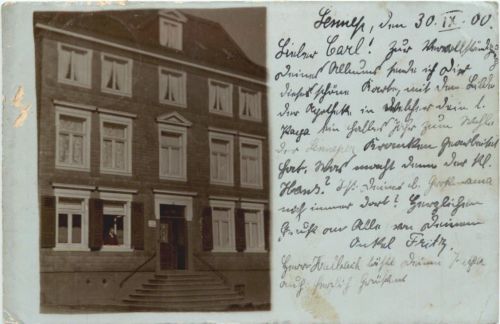 Lennep, den 30. IX. 00.
Lieber Carl! Zur Vervollständig
Deines Albums sende ich Dir
diese schöne Karte, mit dem Bilde
der Apotheke in welcher Dein l.
Papa ein halbes Jahr zum Wohle
der Lenneper Kranken gearbeitet
hat. Was macht denn der kl.
Hans? Ist Deine l. Großmama
noch immer dort? Herzlichen
Gruß an Alle von Deinem
Onkel Fritz.
Herr läßt Deinen Papa
auch herzlich grüßen